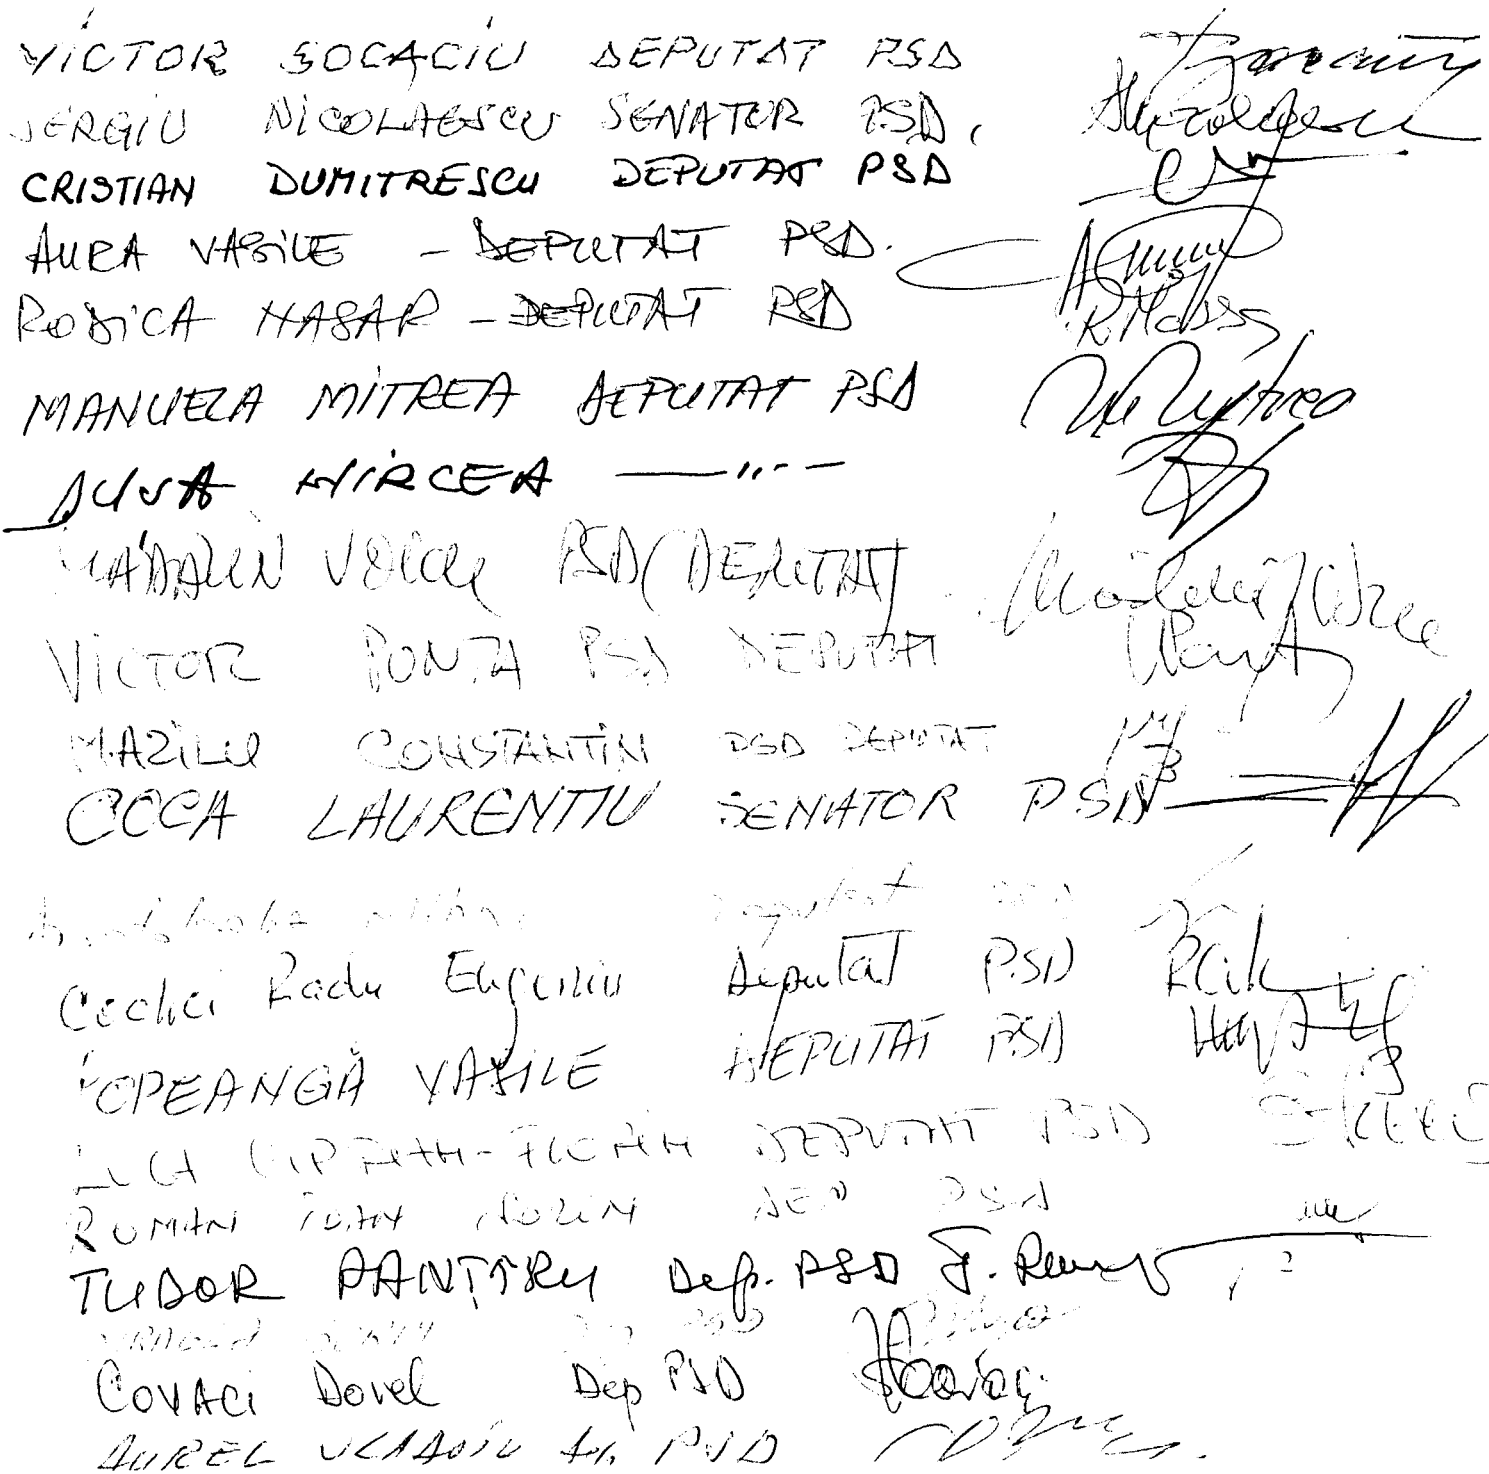 VICTOR SOCACIU DEPUTAT PSD
SERGIU NICOLAESCU SENATOR PSD,
CRISTIAN DUMITRESCU DEPUTAT PSD
AURA VASILE – DEPUTAT PSD.
RODICA NASAR – DEPUTAT PSD R Nassar
MANUELA MITREA DEPUTAT PSD M Mitrea
DUȘA MIRCEA —"—
MĂDĂLIN VOICU PSD (DEPUTAT)
VICTOR PONTA PSD DEPUTAT
MAZILU CONSTANTIN PSD DEPUTAT
COCA LAURENȚIU SENATOR PSD
Deputat PSD
Radu Eugeniu Deputat PSD
POPEANGĂ VASILE DEPUTAT PSD
LUCA CIPRIAN-FLORIN DEPUTAT PSD
ROMAN IOAN SORIN DEP PSD
TUDOR PANȚÎRU Dep. PSD
Dep PSD
COVACI Dorel Dep PSD Covaci
AUREL VLĂDOIU PSD